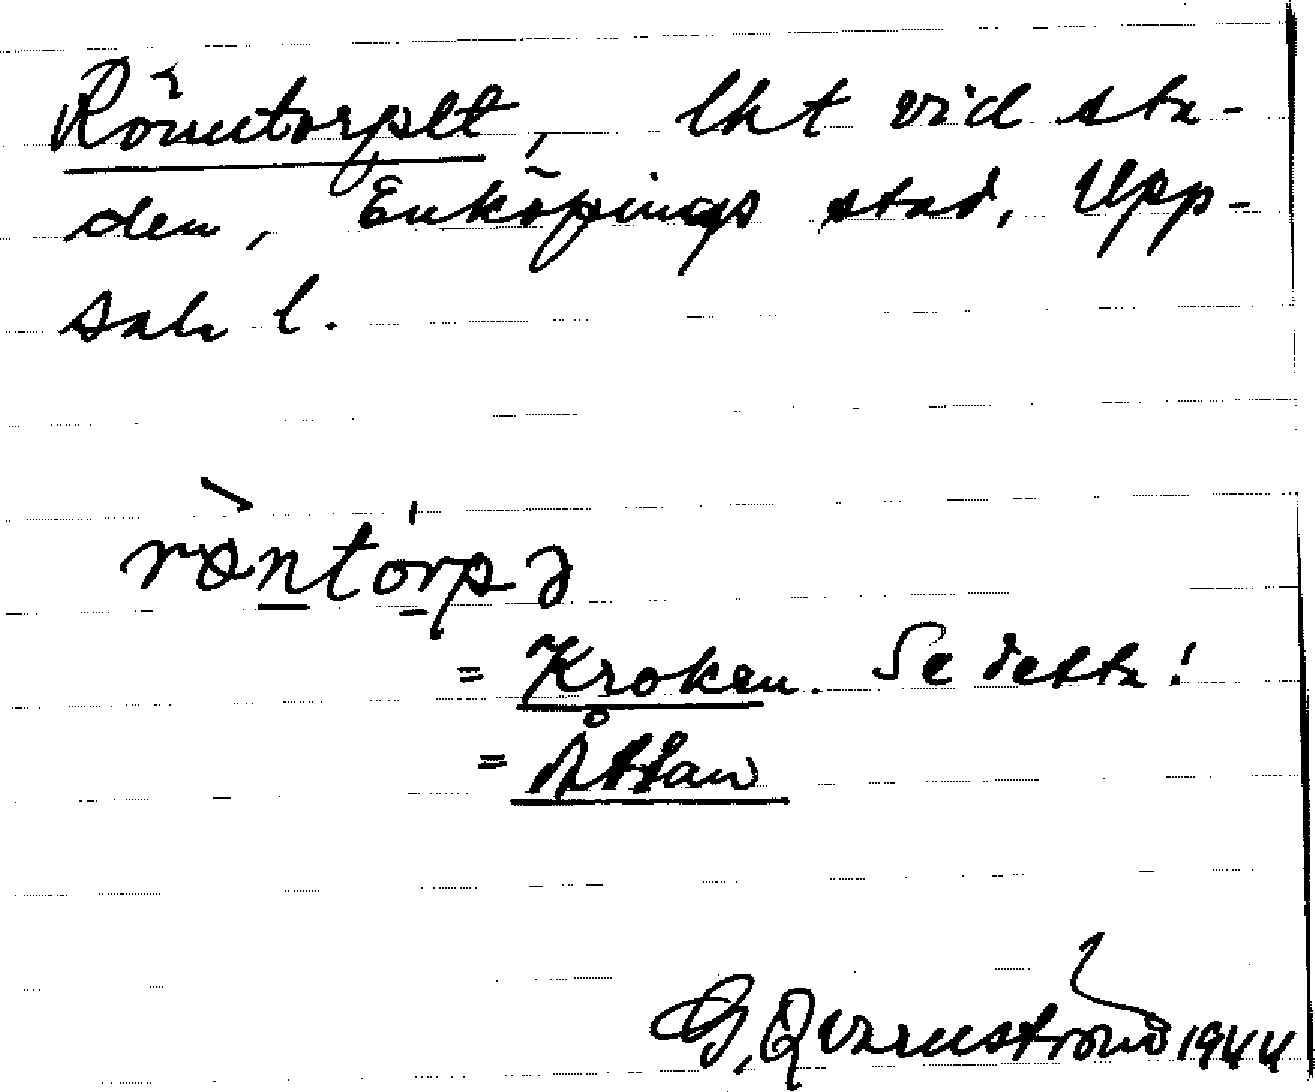 Rönntorpet, lht vid sta-
den, Enköpings stad, Upp-
sala l.
rö̀ntórpə
= Kroken. Se detta!
= Åttan
G. Qvarnström 1944